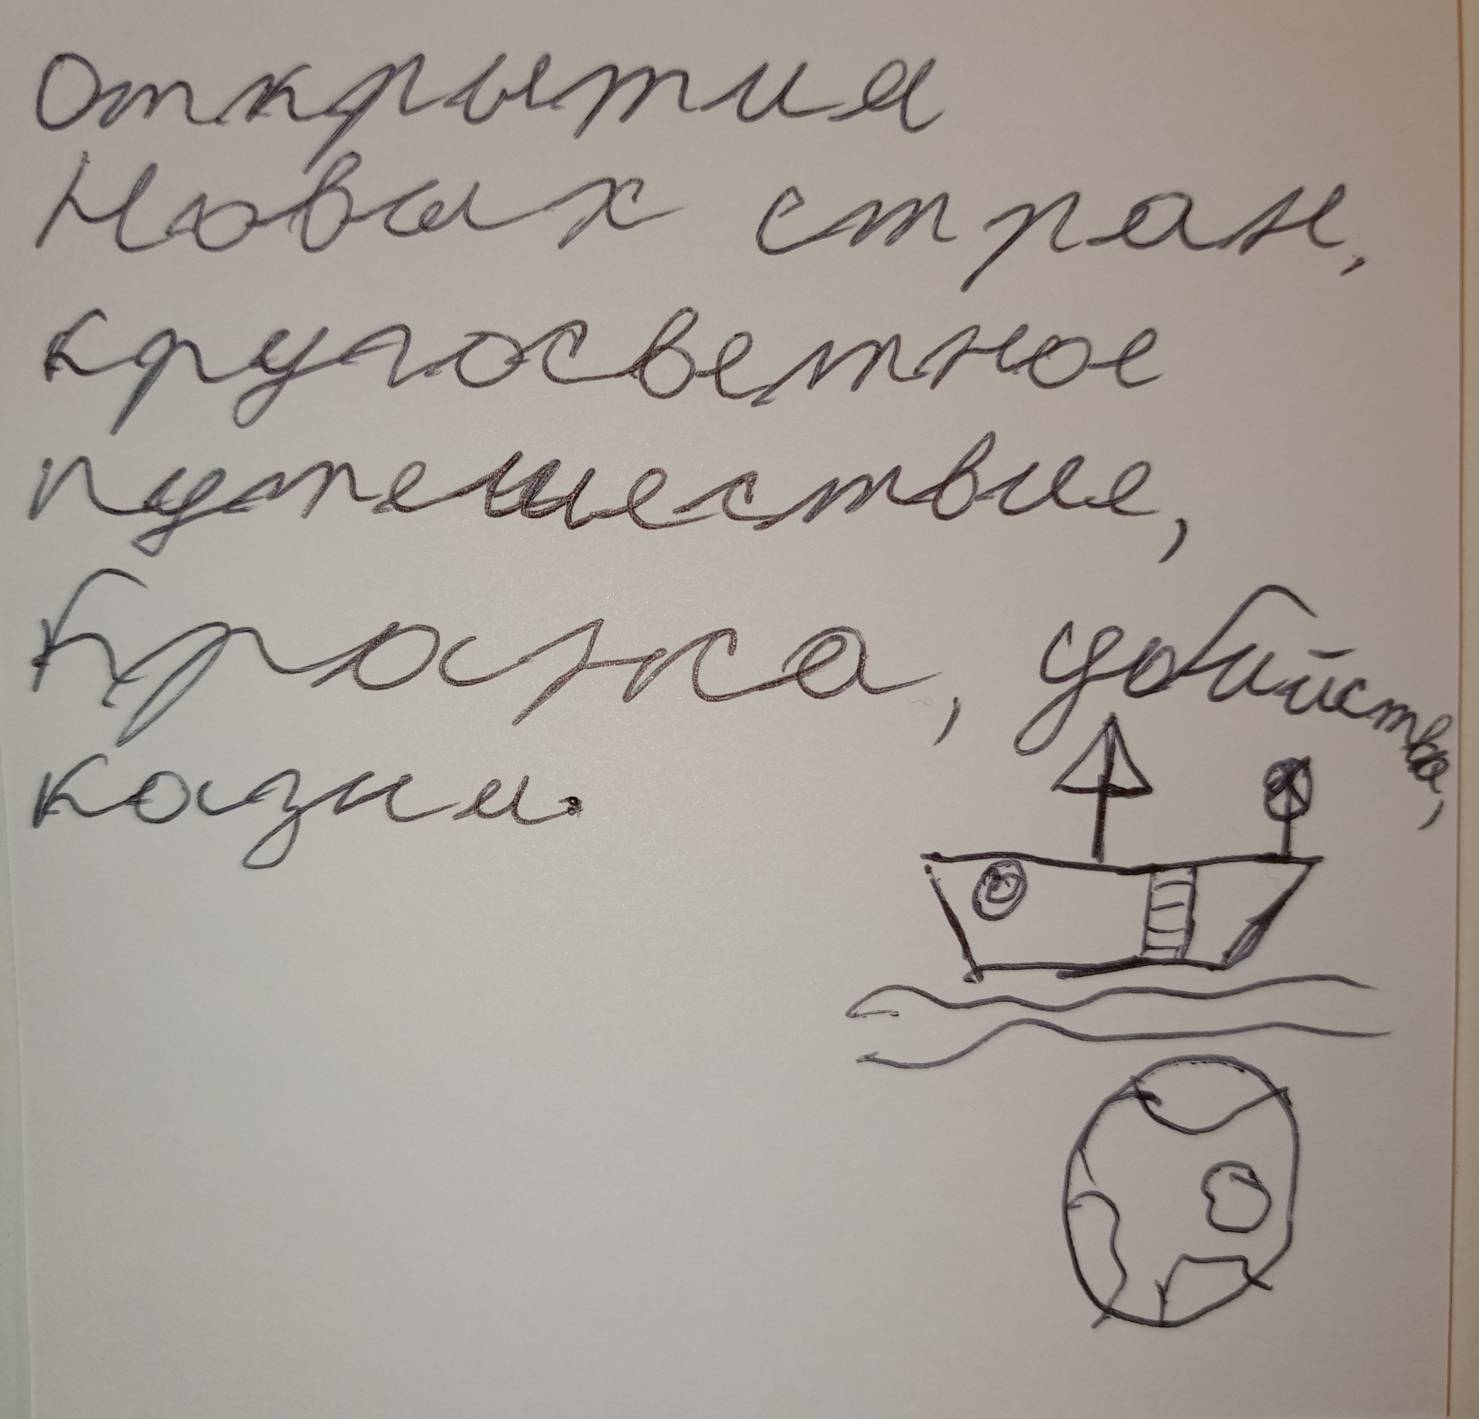 Открытия
Новых стран,
кругосветное
путешествие,
Кража, убийства,
казни.